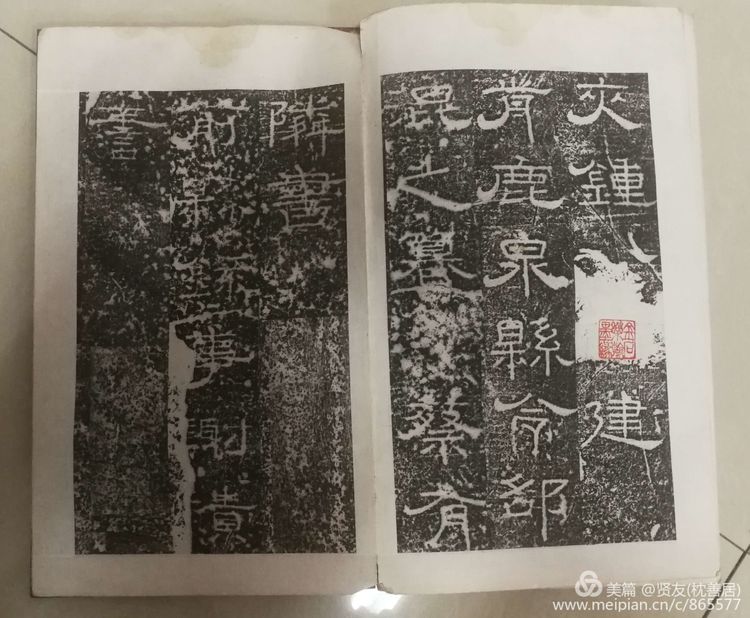 夾鍾建
前鹿泉縣尉邵
混之纂蔡有
隣書
前縣事謝賁
書
美篇 @贤友(枕善居)
www.meipian.cn/c/865577